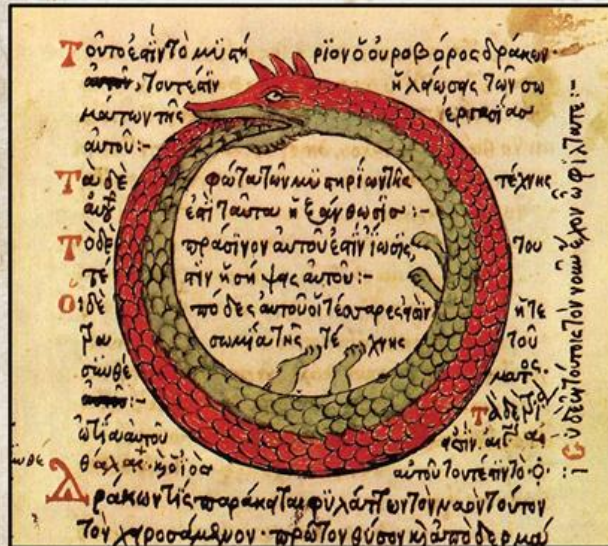 Τοῦτο ἐστὶν τὸ μυστήριον ὁ οὐροβόρος δράκων·
τουτέστιν ἡ λείωσις τῶν σω
μάτων τῆς ἐργασίας
αὐτοῦ :-
Τὰ δὲ φῶτα τῶν μυστηρίων τῆς τέχνης
ἐστὶ ταῦτα ἡ ξάνθωσις :-
Τὸ δὲ πράσινον αὐτοῦ ἐστὶν ἴωσις, του
τέστιν ἡ σήψις αὐτοῦ :-
Οἱ δὲ πόδες αὐτοῦ οἱ τέσσαρες ἐστὶν ἡ τε
σωμία τῆς τέχνης τοῦ
συνθέματος
Τὰ δὲ
ὠτία αὐτοῦ ἐστὶν αἱ
αὐτοῦ τουτέστιν τὸ
Δράκων τις παράκειται φυλάττων τὸν ναὸν τοῦτον
τὸν χειρωσάμενον· πρῶτον θύσον καὶ ἀποδερμά
Σὺ δὲ ἐν τούτοις τὸν νοῦν ἔχων ὦ φίλτατε :-